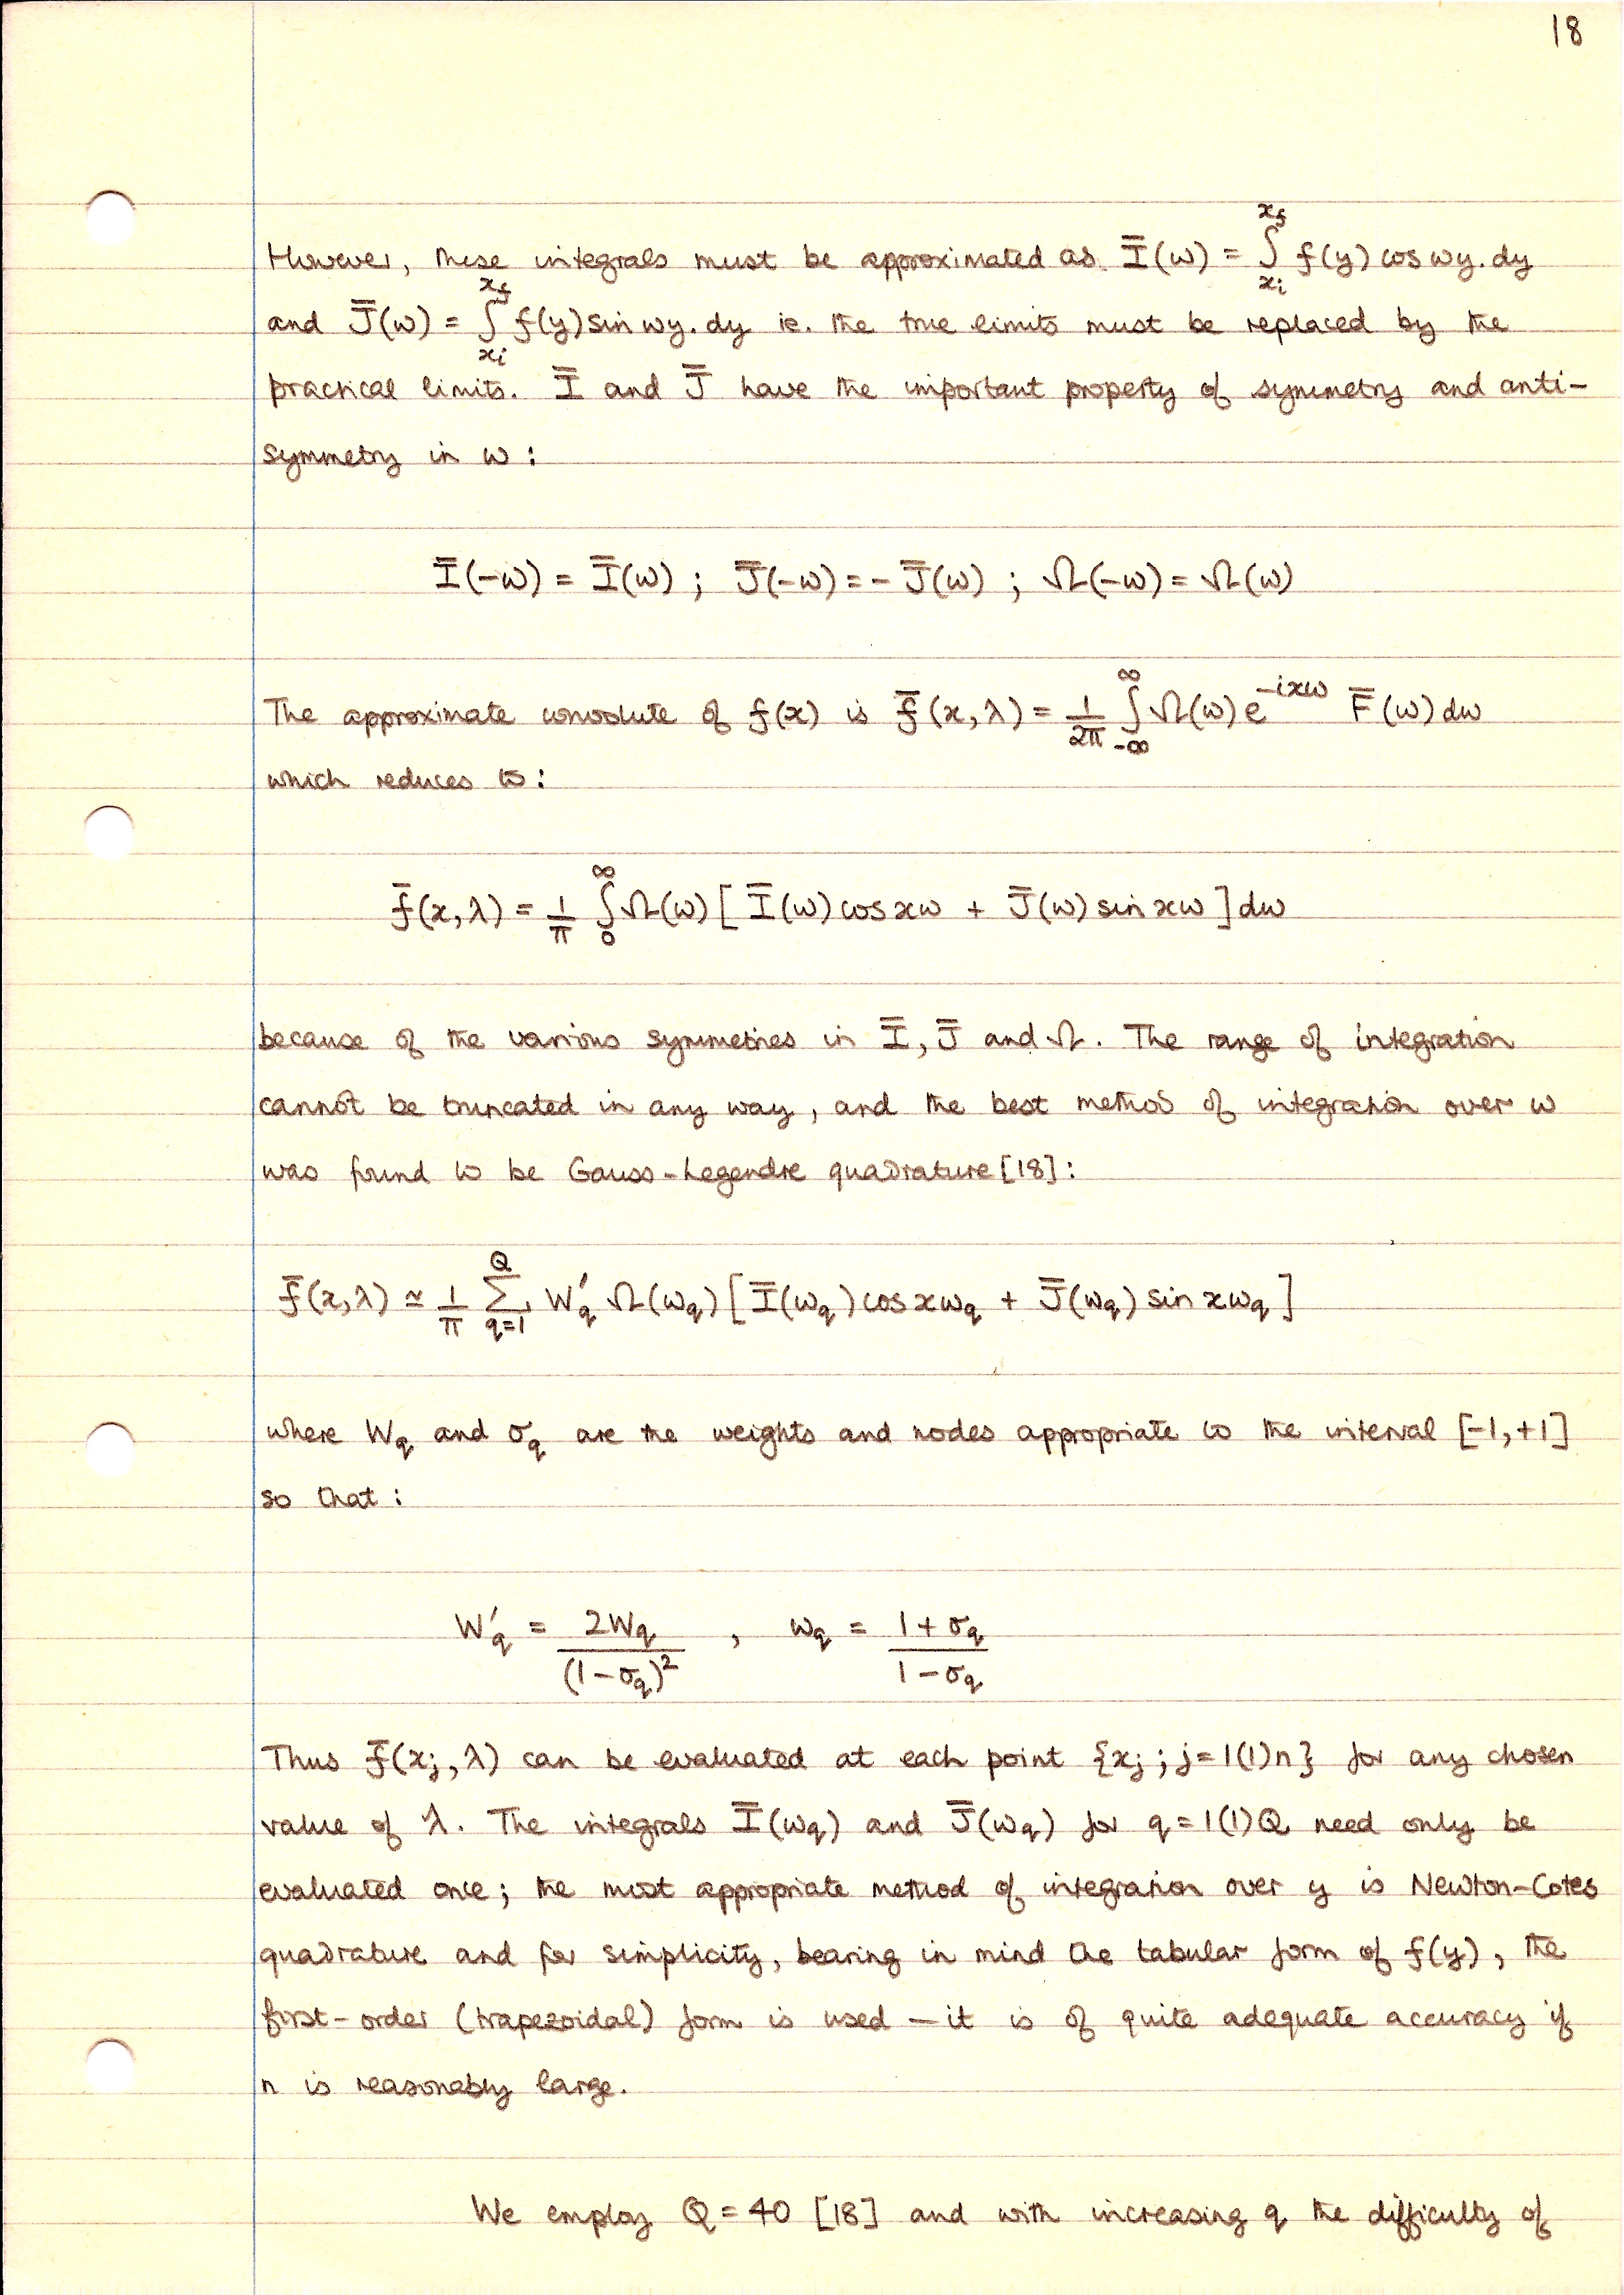 18
However, these integrals must be approximated as Ī(ω) = ∫_{xᵢ}^{x_f} f(y) cos ωy. dy
and J̄(ω) = ∫_{xᵢ}^{x_f} f(y) sin ωy. dy ie. the true limits must be replaced by the
practical limits. Ī and J̄ have the important property of symmetry and anti-
symmetry in ω :
Ī(-ω) = Ī(ω) ; J̄(-ω) = - J̄(ω) ; Ω(-ω) = Ω(ω)
The approximate convolute of f(x) is f̄(x, λ) = 1/2π ∫_{-∞}^{∞} Ω(ω) e^{-ixω} F̄(ω) dω
which reduces to :
f̄(x, λ) = 1/π ∫_0^∞ Ω(ω) [ Ī(ω) cos xω + J̄(ω) sin xω ] dω
because of the various symmetries in Ī, J̄ and Ω. The range of integration
cannot be truncated in any way, and the best method of integration over ω
was found to be Gauss-Legendre quadrature [18] :
f̄(x, λ) ≃ 1/π ∑_{q=1}^{Q} W′_q Ω(ω_q) [ Ī(ω_q) cos xω_q + J̄(ω_q) sin xω_q ]
where W_q and σ_q are the weights and nodes appropriate to the interval [-1, +1]
so that :
W′_q = 2W_q / (1-σ_q)² , ω_q = 1+σ_q / 1-σ_q
Thus f̄(x_j, λ) can be evaluated at each point {x_j ; j=1(1)n} for any chosen
value of λ. The integrals Ī(ω_q) and J̄(ω_q) for q = 1(1)Q need only be
evaluated once ; the most appropriate method of integration over y is Newton-Cotes
quadrature and for simplicity, bearing in mind the tabular form of f(y), the
first-order (trapezoidal) form is used — it is of quite adequate accuracy if
n is reasonably large.
We employ Q = 40 [18] and with increasing q the difficulty of